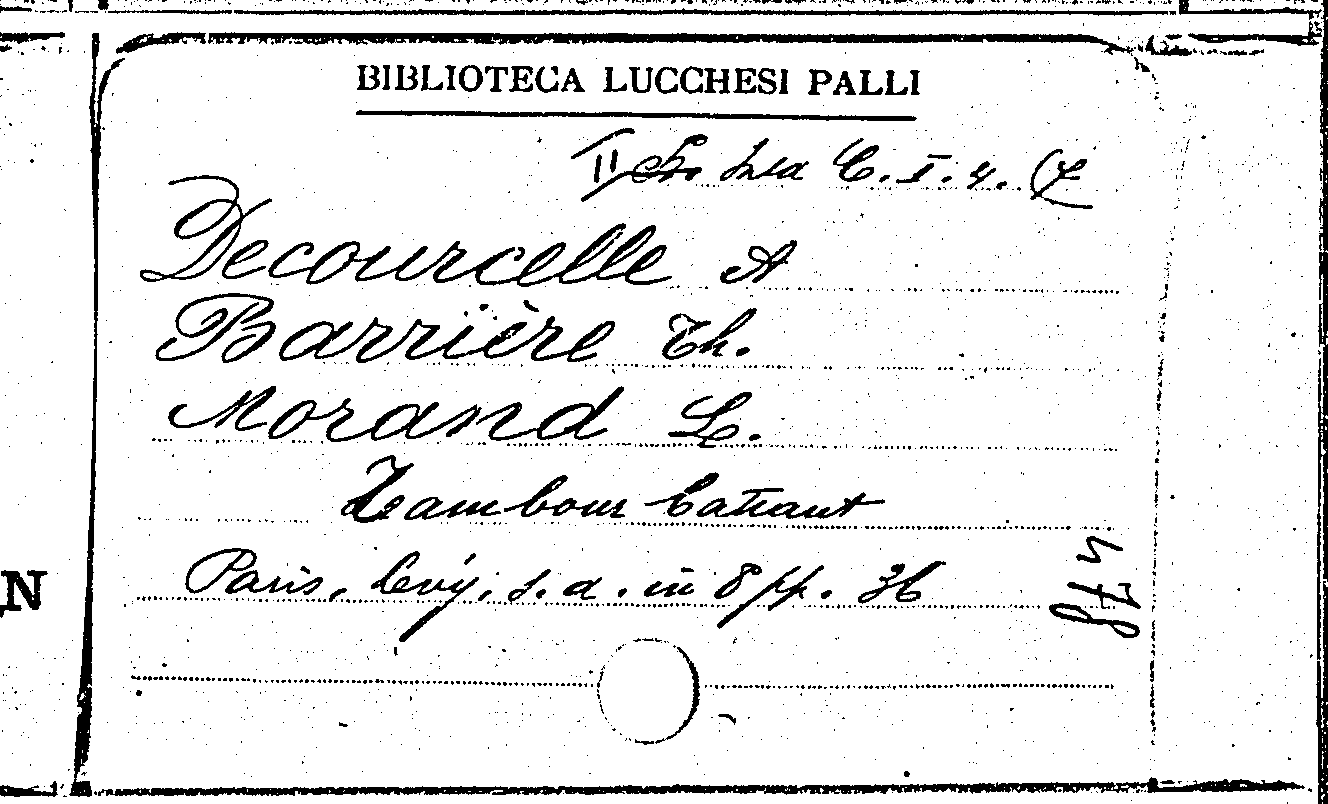 BIBLIOTECA LUCCHESI PALLI
C. I. 4. (7
Decourcelle A
Barrière Th.
Morand L.
Tambour Battant
Paris, Levy, s. a. in 8 pp. 36
N